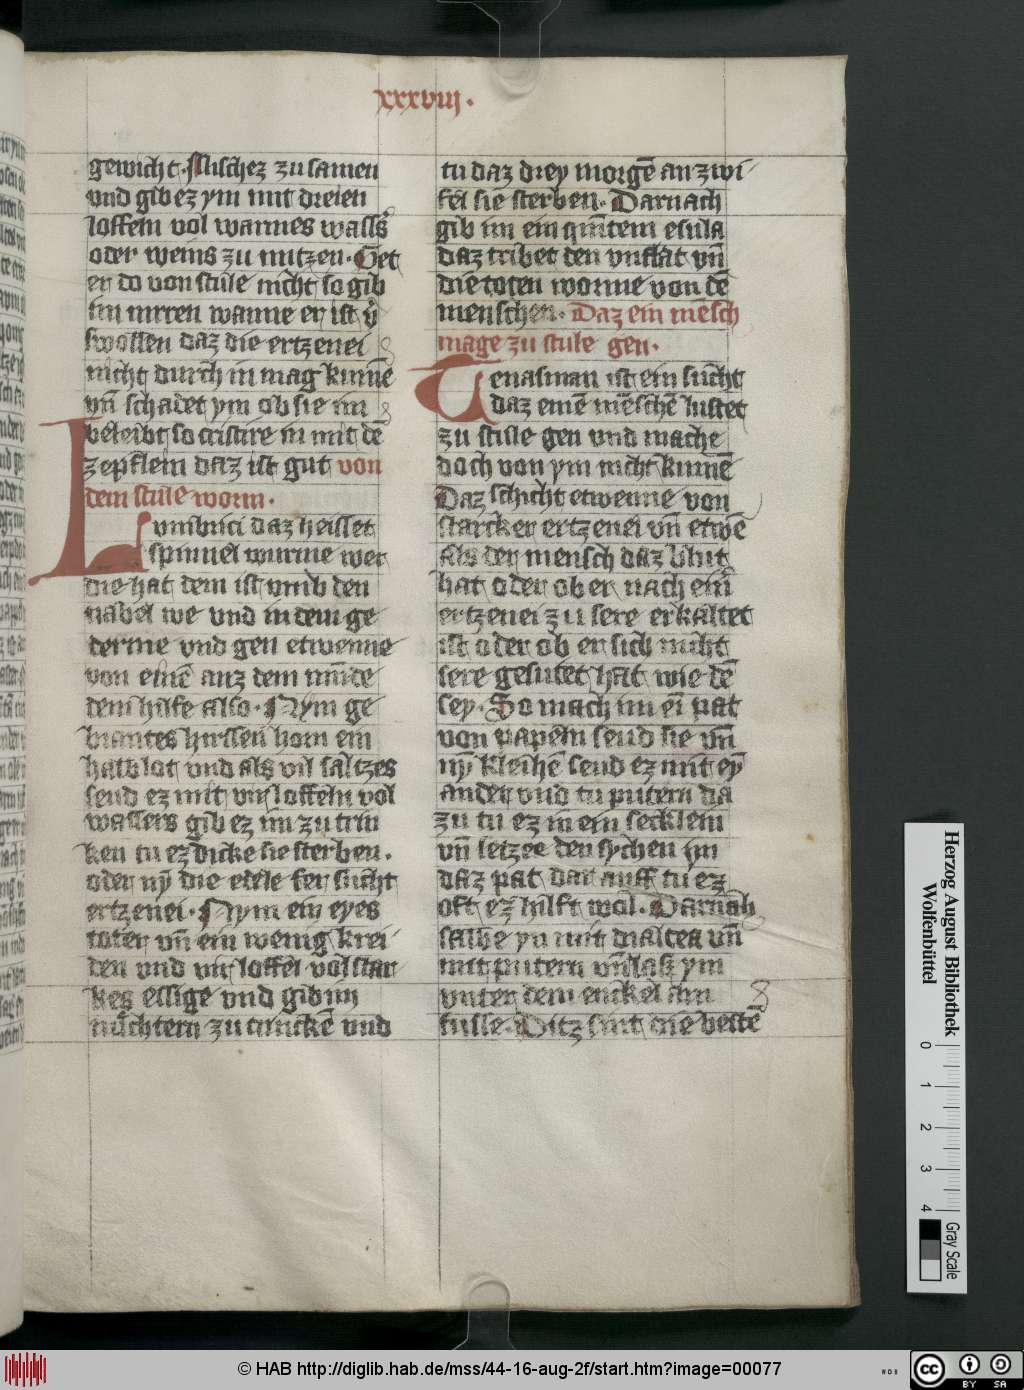 xxxviij.
gewicht. Mischez zu samen
vnd gib ez ym mit dreien
loffeln vol warmes wassˢ
oder weins zu nutzen. Get
er do von stule nicht so gib
im mren wanne er ist v̾
swollen daz die ertzenei
nicht durch in mag kum̄e
vn̄ schadet ym ob sie im
beleibt so cristire in mit dē
zepflein daz ist gut von
dem stule worm.
Lumbrici daz heisset
spinnel wurme wer
die hat dem ist vmb den
nabel we vnd in dem ge
derme vnd gen etwenne
von einē auz dem mūde
dem hilfe also. Nym ge
brantes hirssen horn ein
halb lot vnd als vil saltzes
seud ez mit vir loffeln vol
wassers gib ez im zu trin
ken tu ez dicke sie sterben.
oder ny̅ die edele fer sucht
ertzenei. Nym ein eyes
toter vn̄ ein wenig krei
den vnd vir loffel vol star
kes essige vnd gib im
nuchtern zu trinckē vnd
tu daz drey morgē an zwi
fel sie sterben. Darnach
gib im ein quītein esula
daz tribet den vnflat vn̄
die toten worme von dē
menschen. Daz ein mēsch
mage zu stule gen.
Tenasman ist ein sucht
daz einē mēschē lustet
zu stule gen vnd mache
doch von ym nicht kumē
Daz schicht etwenne von
starcker ertzenei vn̄ etwē
als der mensch daz blut
hat oder ob er nach eīn
ertzenei zu sere erkaltet
ist oder ob er sich nicht
sere gesutet hat wie dē
sey. So mach im eī pat
von papeln seud sie vn̄
ny̅ kleihē seud ez mit ey̅
ander vnd tu putern da
zu tu ez in ein secklein
vn̄ setzee den sychen im
daz pat dar auff tu ez
oft ez hilft wol. Darnah
salbe yn mit dialtea vn̄
mit putern vn̄ lasz ym
vnter dem enckel am
fusse. Ditz sint die bestē
Herzog August Bibliothek
Wolfenbüttel
0 1 2 3 4
Gray Scale
© HAB http://diglib.hab.de/mss/44-16-aug-2f/start.htm?image=00077
cc BY SA